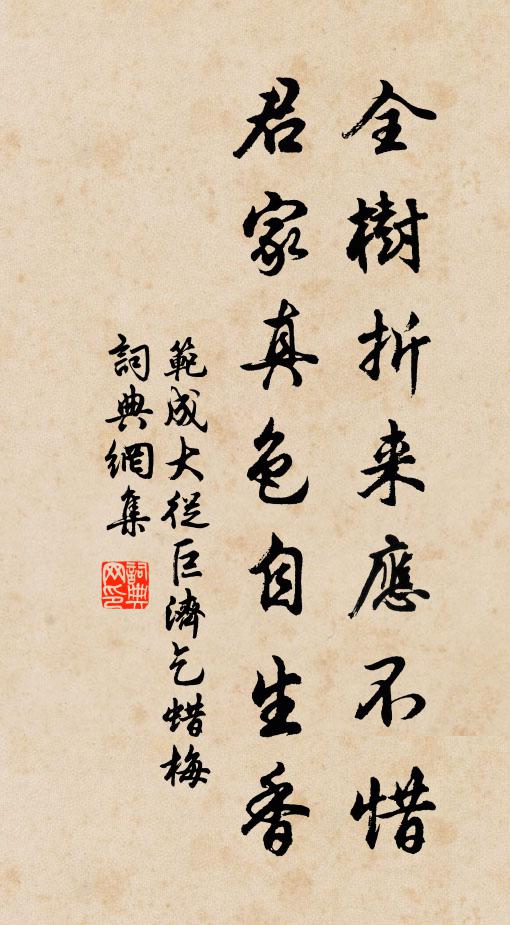 全樹折来應不惜
君家真色自生香
範成大從巨濟乞蜡梅
詞典網集
詞典网印